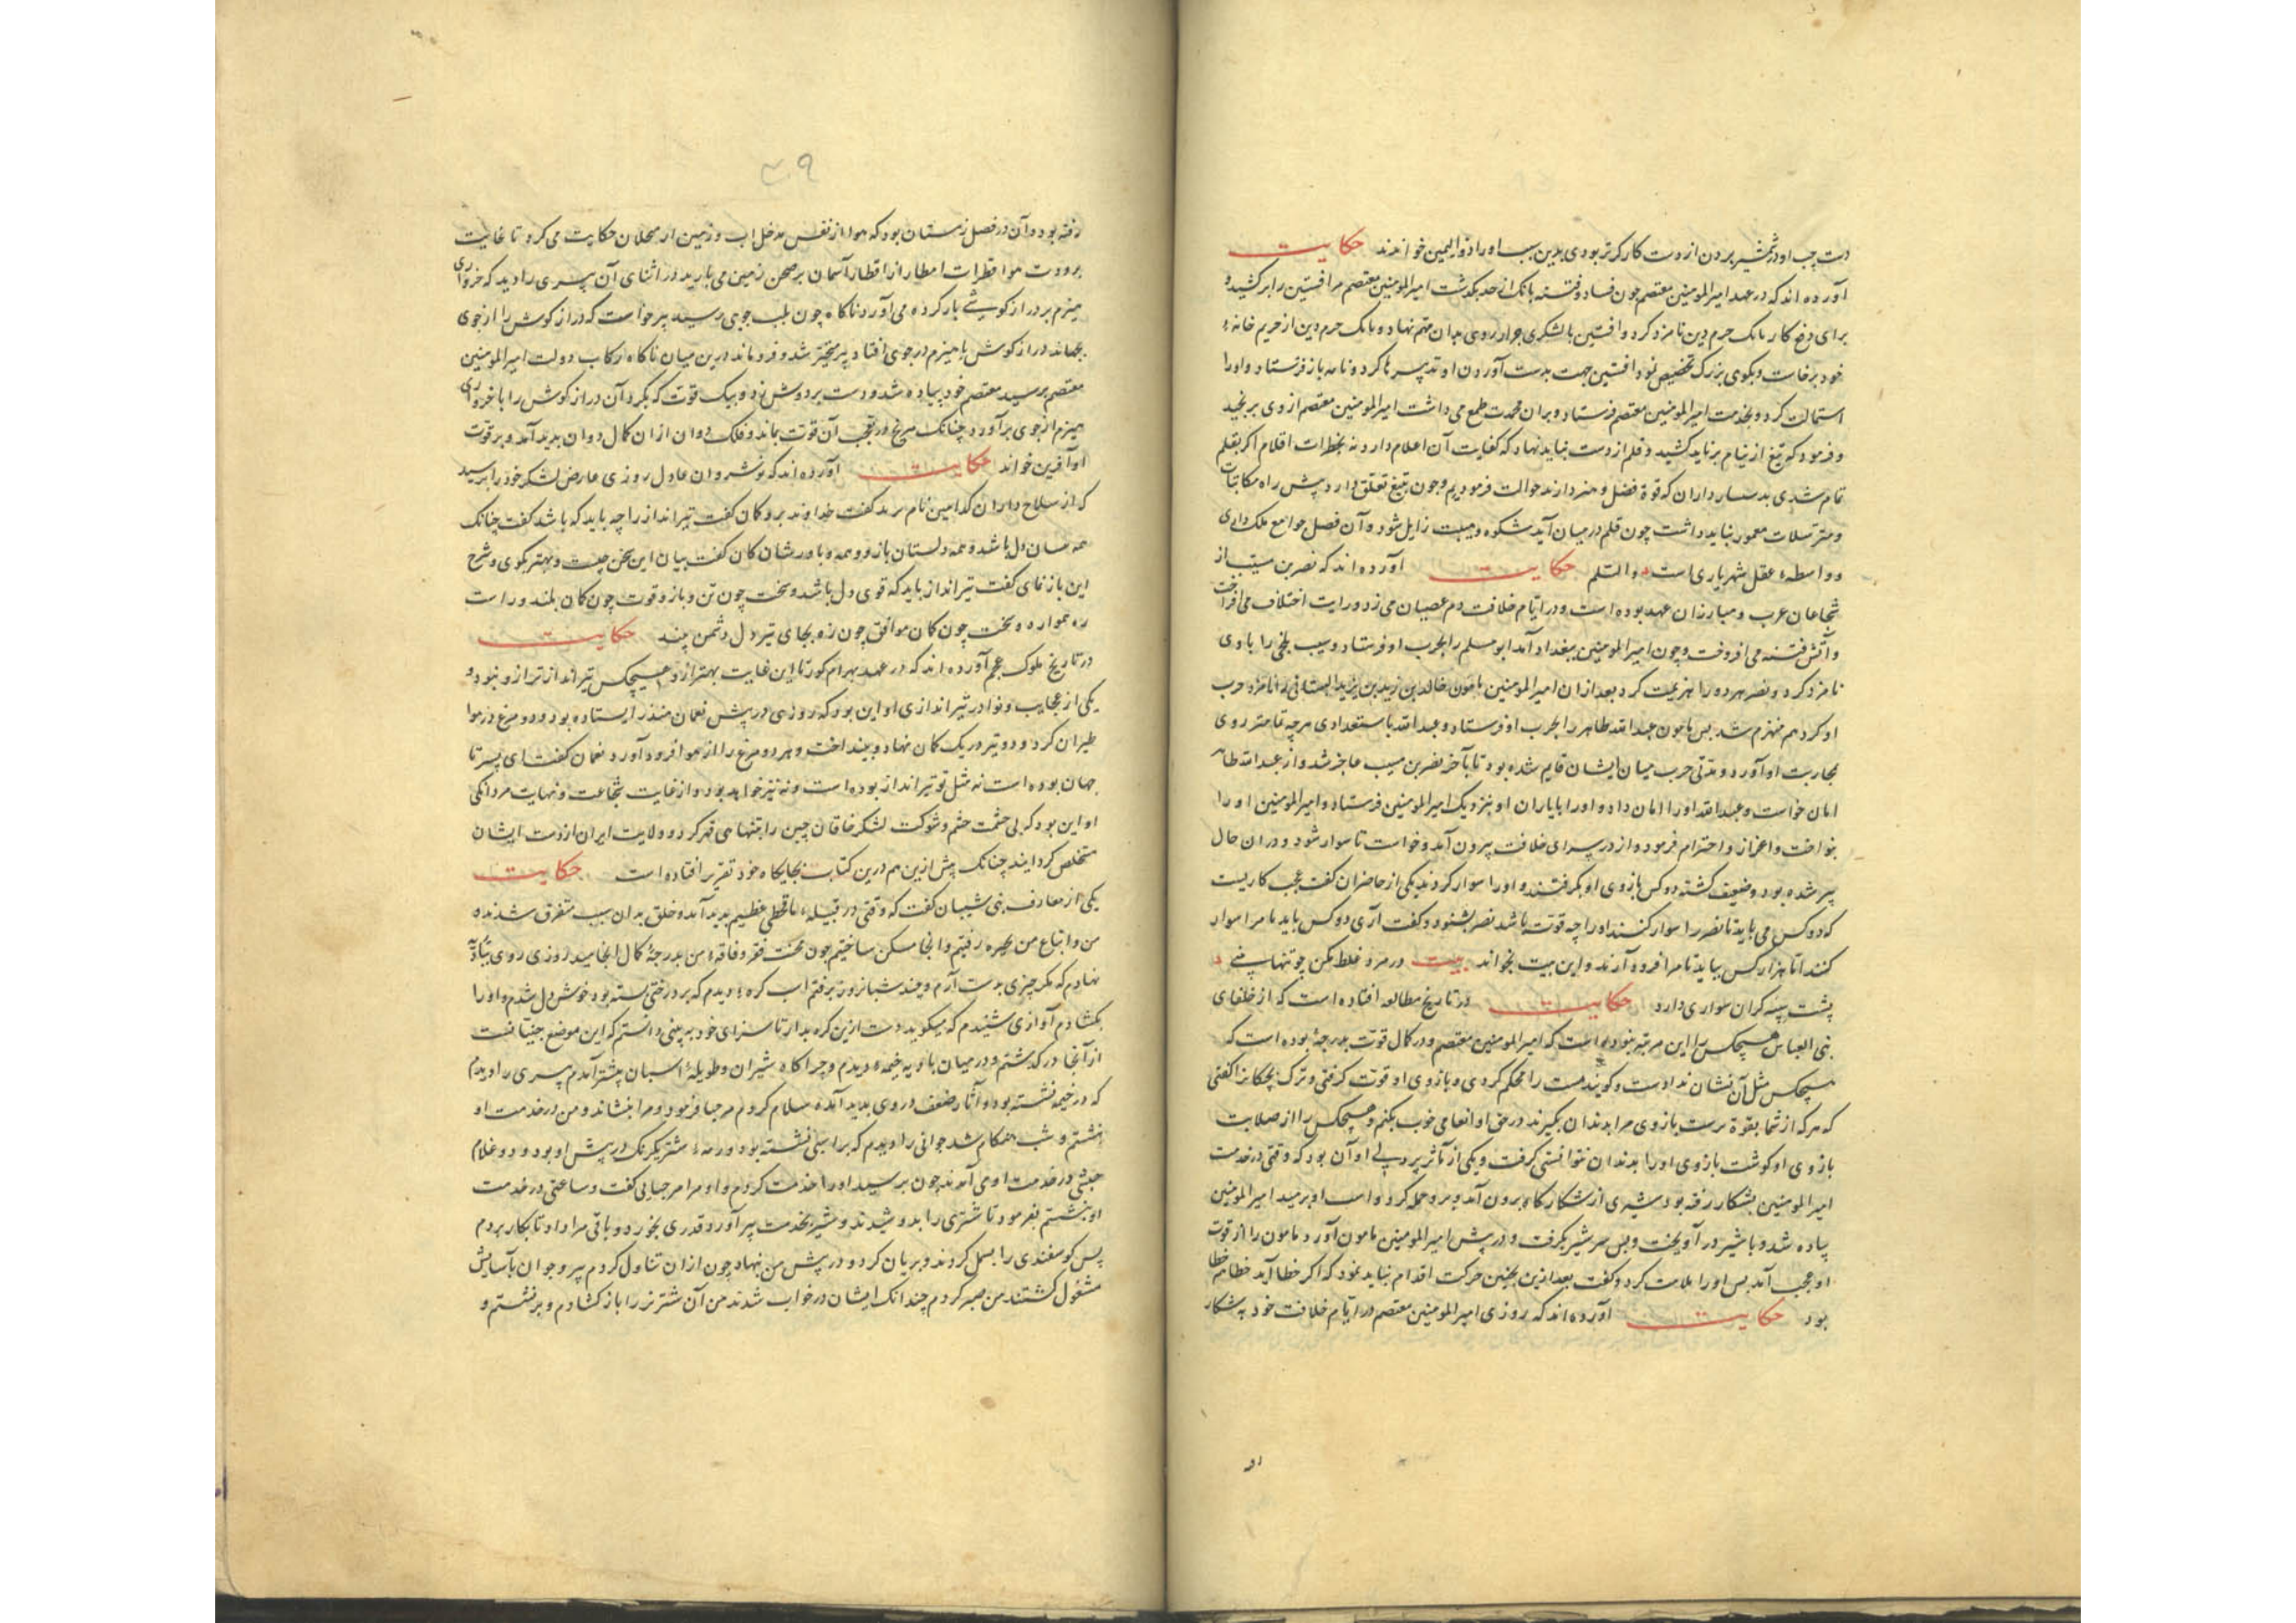 دست چپ او در شمشیر بردن از دست کارگرتر بودی بدین سبب او را ذوالیمین خواندند حکایت
آورده اند که در عهد امیرالمومنین معتصم چون فساد و فتنه بابک از حد بگذشت امیرالمومنین معتصم مر افشین را برکشید و
برای دفع کار بابک خرم دین نامزد کرد و افشین با لشکری جرار روی بدان مهم نهاد و بابک خرم دین از حریم خانهٔ
خود برخاست و بکوی بزرک تحصن نمود افشین جهت بدست آوردن او تدبیرها کرد و نامه باز فرستاد و او را
استمالت کرد و بخدمت امیرالمومنین معتصم فرستاد و بران محمدت طمع می داشت امیرالمومنین معتصم از وی برنجید
و فرمود که تیغ از نیام برباید کشید و قلم از دست بباید نهاد که کفایت آن اعلام دارد نه بخطرات اقلام اکر بقلم
تمام شدی بدستارداران که قوة فضل و هنر دارند حوالت فرمودیم و چون بتیغ تعلق دارد پیش راه مکاتبات
و مترسلات معمور نباید داشت چون قلم در میان آید شکوه و هیبت زایل شود و آن فصل جوامع ملک داری
و واسطهٔ عقل شهریاری است والسلم حکایت آورده اند که نصر بن سیب از
شجاعان عرب و مبارزان عهد بوده است و در ایام خلافت دم عصیان می زد و رایت اختلاف می افراخت
و آتش فتنه می افروخت و چون امیرالمومنین ببغداد آمد ابو مسلم را بحرب او فرستاد و سیب بلخی را با وی
نامزد کرد و نصر هردو را هزیمت کرد بعد ازان امیرالمومنین مامون خالد بن یزید بن یزید را نامزد حرب
او کرد هم منهزم شد پس مامون عبدالله طاهر را بحرب او فرستاد و عبدالله با استعدادی هرچه تمامتر روی
بمحاربت او آورد و مدتی حرب میان ایشان قایم شده بود تا بآخر نصر بن سیب عاجز شد و از عبدالله طاهر
امان خواست و عبدالله او را امان داد و او را با یاران او بنزدیک امیرالمومنین فرستاد و امیرالمومنین او را
بنواخت و اعزاز و احترام فرمود و از در سرای خلافت بیرون آمد و خواست تا سوار شود و دران حال
پیر شده بود و ضعیف کشته دو کس بازوی او بکرفتند و او را سوار کردند یکی از حاضران کفت عجب کاریست
که دو کس می باید تا نصر را سوار کنند او را چه قوت باشد نصر بشنود و کفت آری دو کس باید تا مرا سوار
کنند اما هزار کس بباید تا مرا فرود آرند و این بیت بخواند بیت در مرد غلط مکن چو تنها بینی
پشت سپه کران سواری دارد حکایت در تاریخ مطالعه افتاده است که از خلفای
بنی العباس هیچکس را این مرتبه نبوده است که امیرالمومنین معتصم و در کمال قوت بدرجهٔ بوده است که
هیچکس مثل آن نشان نداد و کویند دست را محکم کردی و بازوی او قوت کرفتی و ترک بچکانرا کفتی
که هر که از شما بقوة بازوی مرا بدندان بکیرند در حق او انعامی خوب بکنم و هیچکس را از صلابت
بازوی او کوشت بازوی او را بدندان نتوانستی کرفت و یکی از مآثر پردلی او آن بود که وقتی در خدمت
امیرالمومنین بشکار رفته بود شیری از شکارکاه برون آمد و برو حمله کرد و اسب او برمید امیرالمومنین
پیاده شد و با شیر درآویخت و پس سر شیر بکرفت و در پیش امیرالمومنین مامون آورد مامون را از قوت
او عجب آمد پس او را ملامت کرد و کفت بعد ازین بچنین حرکت اقدام نباید نمود که اکر خطا آید خطا همه خطا
بود حکایت آورده اند که روزی امیرالمومنین معتصم در ایام خلافت خود به شکار
۴۹
رفته بود و آن در فصل زمستان بود که هوا از نفس مدخل اب و زمین از حکایت می کرد تا غایت
برودت هوا قطرات امطار از اقطار آسمان بر صحن زمین می بارید در اثنای آن پیری را دید که خرواری
هیزم بر درازکوشی بار کرده می آورد ناکاه چون بلب جوی رسید پیر خواست که درازکوش را از جوی
بجهاند درازکوش با هیزم در جوی افتاد پیر متحیر شد و فرو ماند درین میان ناکاه رکاب دولت امیرالمومنین
معتصم برسید معتصم خود پیاده شد و دست بر دوش زد و بیک قوت که بکرد آن درازکوش را با خرواری
هیزم از جوی برآورد چنانک مریخ در تعجب آن قوت بماند و فلک دوان ازان کمال دوان بدید آمد و بر قوت
او آفرین خواند حکایت آورده اند که نوشروان عادل روزی عارض لشکر خود را پرسید
که از سلاح داران کدامین نام برید کفت خداوند تیر و کمان کفت تیرانداز را چه باید که باشد کفت چنانک
همه تنشان دل باشد و همه دلشان بازو و همه بازوشان کمان کفت بیان این سخن چیست و بهتر بکوی و شرح
این بازنمای کفت تیرانداز باید که قوی دل باشد و سخت چون تن و بازو قوت چون کمان بلند و راست
زه هموار و سخت چون کمان موافق چون زه بجای تیر دل دشمن بیند حکایت
در تاریخ ملوک عجم آورده اند که در عهد بهرام کور تا این غایت بهتر ازو هیچکس تیرانداز تر ازو نبود و
یکی از عجایب و نوادر تیراندازی او این بود که روزی در پیش نعمان منذر ایستاده بود و دو مرغ در هوا
طیران کرد و دو تیر در یک کمان نهاد و بینداخت و هر دو مرغ را از هوا فرود آورد نعمان کفت ای پسر تا
جهان بوده است نه مثل تو تیرانداز بوده است و نه نیز خواهد بود و از غایت شجاعت و نهایت مردانکی
او این بود که بی حشمت حشم و شوکت لشکر خاقان چین را بتنهایی قهر کرد و ولایت ایران از دست ایشان
متخلص کردانید چنانک پیش ازین هم درین کتاب بجایکاه خود تقریر افتاده است حکایت
یکی از معارف بنی شیبان کفت که وقتی در قبیلهٔ ما قحطی عظیم پدید آمد و خلق بدان سبب متفرق شدند
من و اتباع من بحیره رفتیم و انجا مسکن ساختیم چون محنت فقر و فاقهٔ من بدرجهٔ کمال انجامید روزی روی ببادیه
نهادم که مکر چیزی بدست آرم و چند شبانروز برفتم اسب کرهٔ دیدم که بر درختی بسته بود خوش دل شدم و او را
بکشادم آوازی شنیدم که میکوید دست ازین کره بدار تا سزای خود نبینی دانستم که این موضع جنیانست
از آنجا درکذشتم و در میان بادیه خیمهٔ دیدم و چراکاه شتران و طویلهٔ اسبان پیشتر آمدم پیری را دیدم
که در خیمه نشسته بود و آثار ضعف در وی پدید آمده سلام کردم مرحبا فرمود و مرا بنشاند و من در خدمت او
بنشستم و شب هنکام شد جوانی را دیدم که بر اسبی نشسته بود و رمهٔ شتر یکرنک در پیش او بود و دو غلام
حبشی در خدمت او می آمدند چون برسید او را خدمت کردم و او مرا مرحبایی کفت و ساعتی در خدمت
او بنشستم بفرمود تا شتری را بدوشیدند و شیر بخدمت پیر آورد قدری بخورد و باقی مرا داد تا بکار بردم
پس کوسفندی را بسمل کردند و بریان کرد و در پیش من بنهاد چون ازان تناول کردم پیر و جوان بآسایش
مشغول کشتند من صبر کردم چندانک ایشان در خواب شدند من آن شتر نر را باز کشادم و برنشستم و